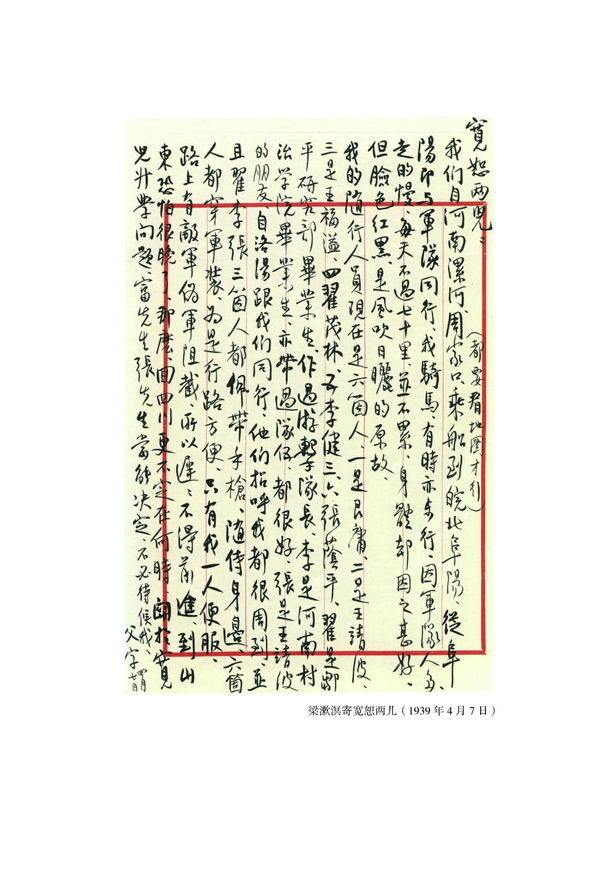 寬恕两兒：
（都要看地圖才行）
我们自河南漯河、周家口乘船到皖北阜陽、從阜
陽即与軍隊同行、我騎馬有時亦步行、因軍隊人多、
走的慢、每天不過七十里、並不累、身體却因之甚好、
但臉色紅黑、是風吹日曬的原故、
我的隨行人員現在是六個人、一是艮庸、二是王靖波、
三是王福溢、四翟茂林、五李健三、六張蔭平、翟是鄒
平研究部畢業生、作過游擊隊長、李是河南村
治学院畢業生、亦帶過隊伍都很好、張是王靖波
的朋友、自洛陽跟我们同行、他们招呼我都很周到、並
且翟李張三箇人都佩帶手槍、隨侍身邊、六箇
人都穿軍装、為是行路方便、只有我一人便服、
路上有敵軍偽軍阻截所以遲遲不得前進、到山
東恐怕很晚了、那麽、回四川更不定在何時、關於寬
兒升學问题、富先生張先生當能决定、不必待候我、
父字
梁漱溟寄宽恕两儿（1939 年 4 月 7 日）